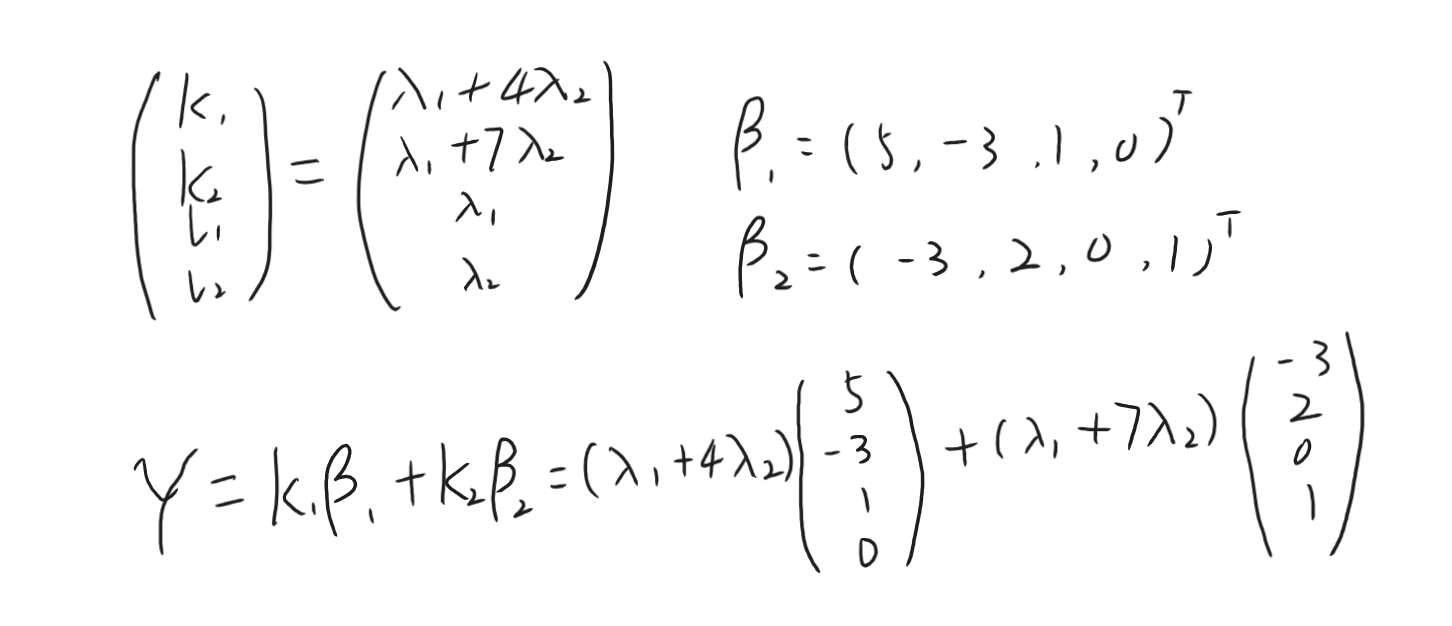 (k₁, k₂, l₁, l₂)ᵀ = (λ₁+4λ₂, λ₁+7λ₂, λ₁, λ₂)ᵀ
β₁ = (5, -3, 1, 0)ᵀ
β₂ = (-3, 2, 0, 1)ᵀ
γ = k₁β₁ + k₂β₂ = (λ₁+4λ₂)(5, -3, 1, 0)ᵀ + (λ₁+7λ₂)(-3, 2, 0, 1)ᵀ